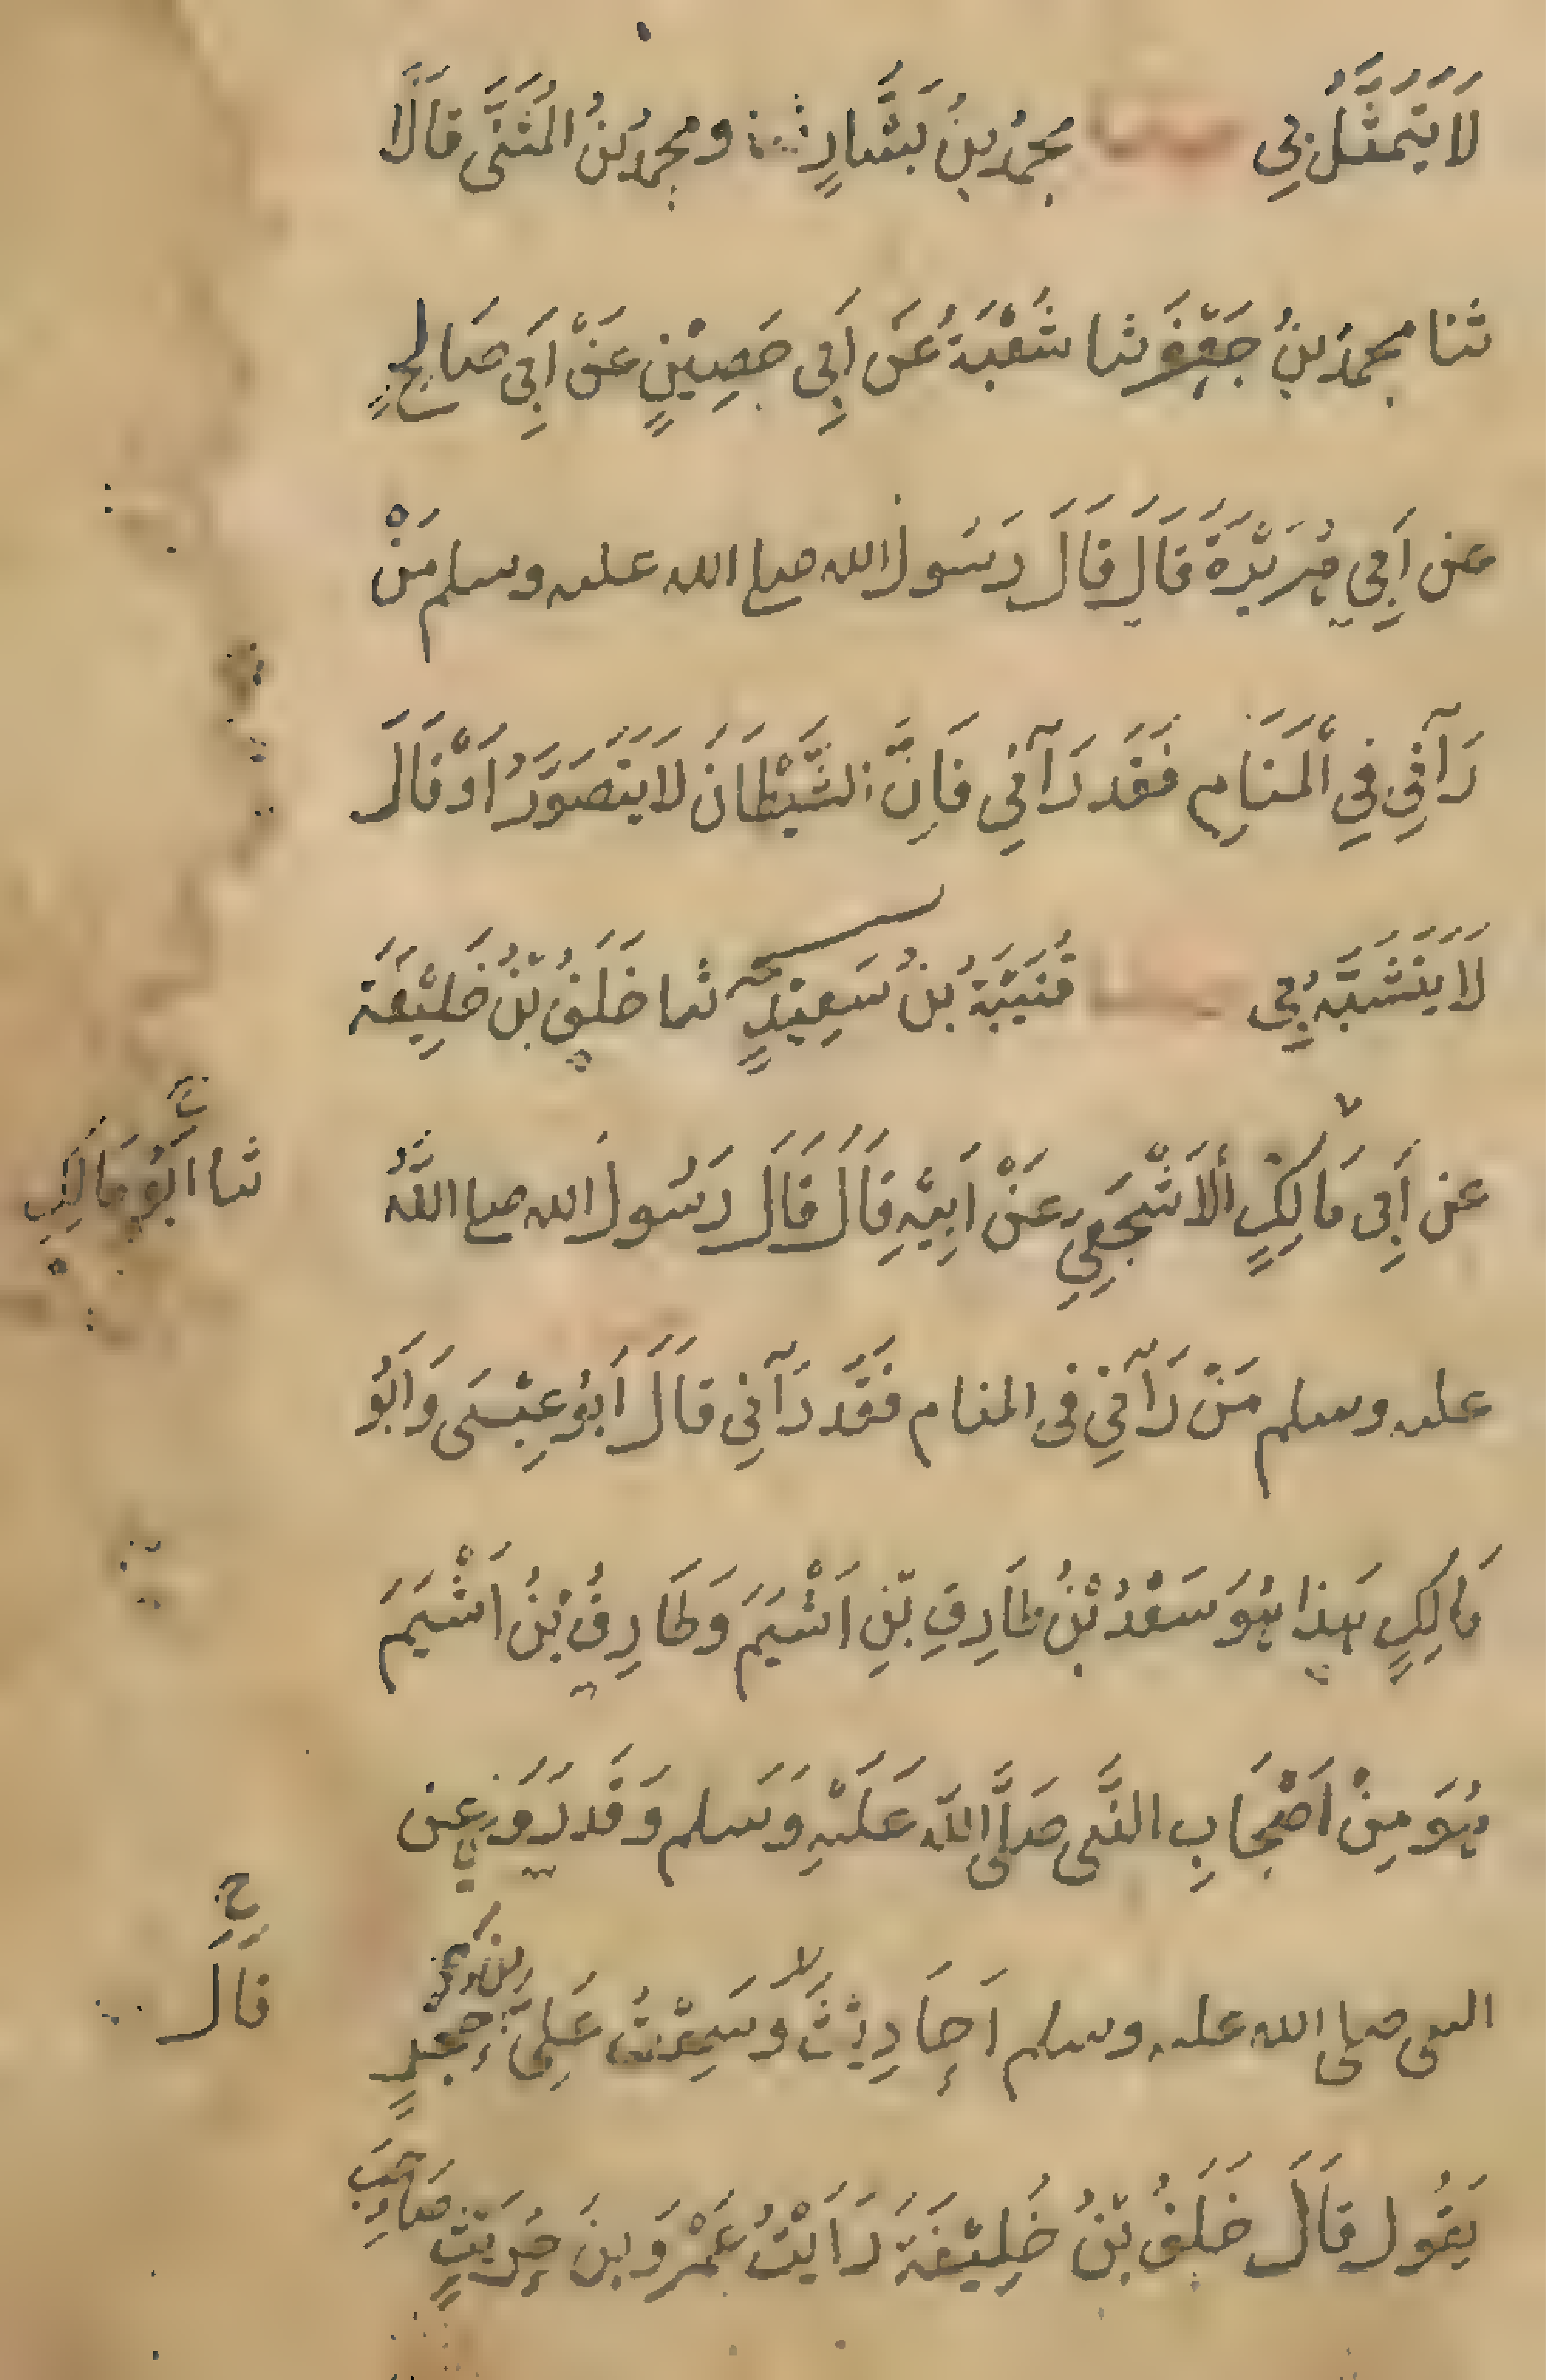 لَا يَتَمَثَّلُ بِي محمدُ بنُ بَشَّارٍ ومحمدُ بنُ المُثَنَّى قَالَا
ثنا محمدُ بنُ جَعْفَرٍ ثنا شُعْبَةُ عَن أَبِي حَصِيْنٍ عَنْ أَبِي صَالِحٍ
عن أَبِي هُرَيْرَةَ قَالَ قَالَ رَسُول الله صلى الله عليه وسلم مَنْ
رَآنِي فِي الْمَنَامِ فَقَد رَآنِي فَإِنَّ الشَّيْطَانَ لَا يَتَصَوَّرُ أَوْ قَالَ
لَا يَتَشَبَّهُ بِي قُتَيْبَةُ بْنُ سَعِيْدٍ ثنا خَلَفُ بْنُ خَلِيْفَة
عن أَبِي مَالِكٍ الْأَشْجَعِيِ عَنْ أَبِيْهِ قَالَ قَالَ رَسُولَ الله صلى اللَّهُ
ثنا أَبُو مَالِكٍ
عليه وسلم مَنْ رَآنِي في المنام فَقَد رَآنِي قَالَ أَبُو عِيْسَى وَأَبُو
مَالِكٍ هَذا هُوَ سَعْدُ بْنُ طَارِقِ بْنِ أَشْيَمَ وَطَارِقُ بْنُ أَشْيَمَ
هُوَ مِنْ أَصْحَابِ النَّبى صَلَّى الله عَلَيْهِ وَسَلم وَقَد رَوَى عن
النبى صلى الله عليه وسلم أَحَادِيْثَ وَسَمِعْتُ عَلِيَّ بن حُجْرٍ
قَالَ
يَقُول قَالَ خَلَفُ بْنُ خَلِيْفَةَ رَأَيْتُ عَمْرَو بنَ حُرَيْثٍ صَاحِبَ